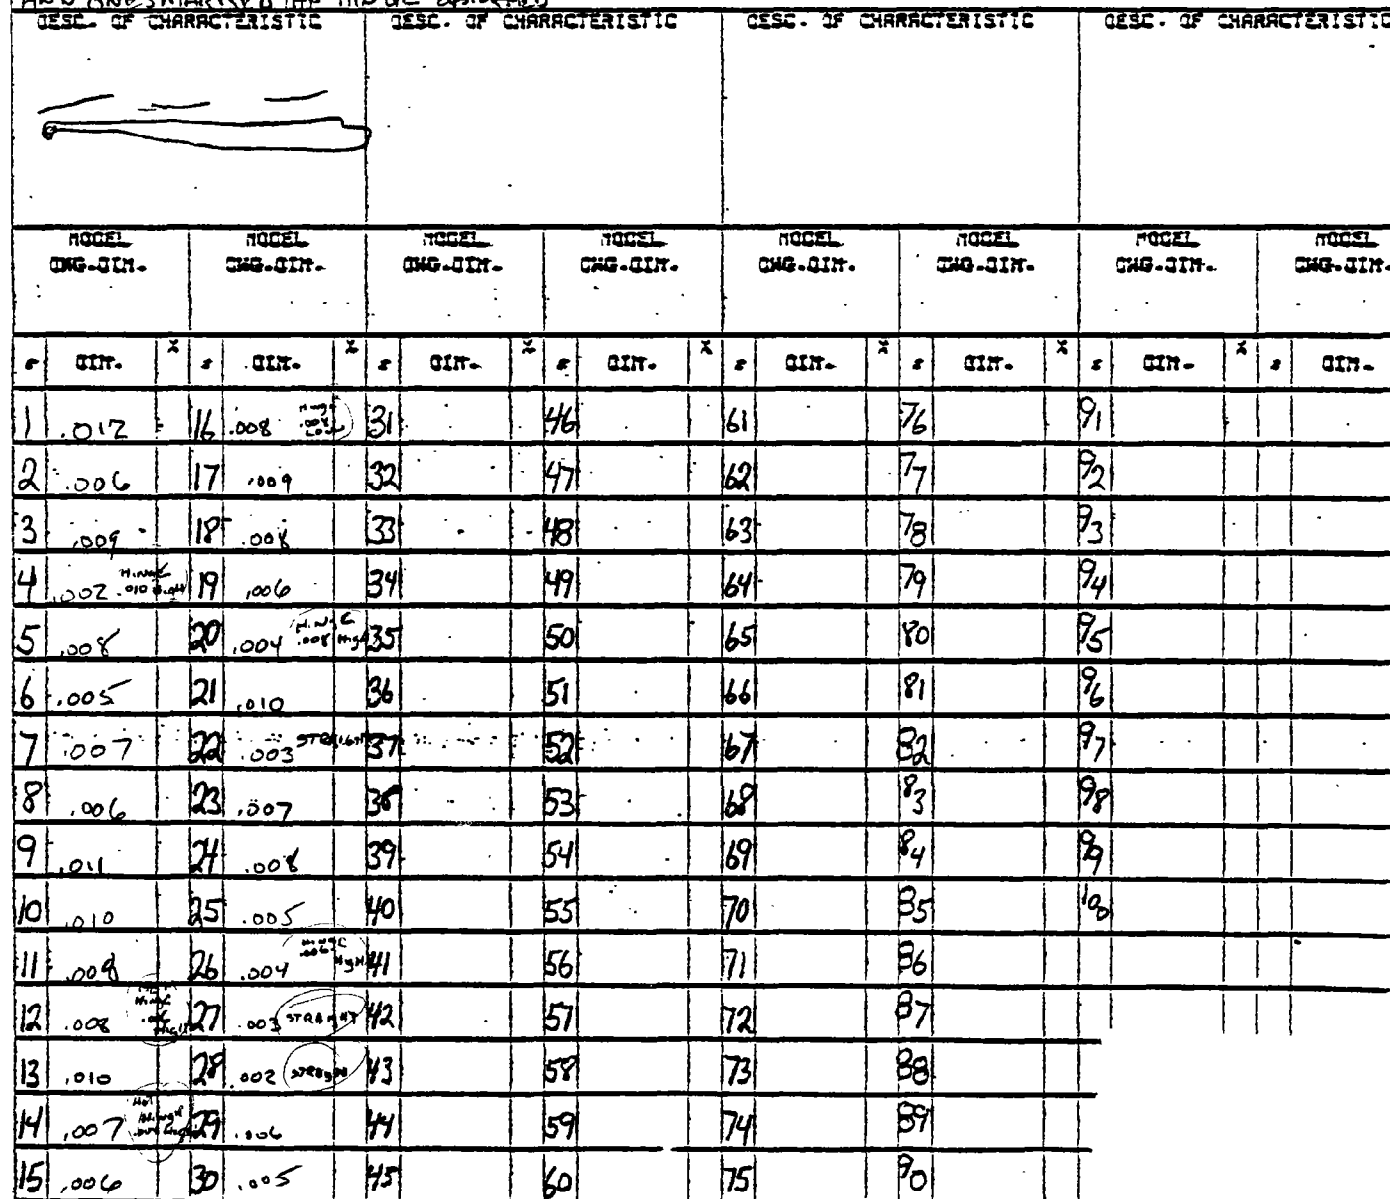 DESC. OF CHARACTERISTIC DESC. OF CHARACTERISTIC DESC. OF CHARACTERISTIC DESC. OF CHARACTERISTIC
MODEL MODEL MODEL MODEL MODEL MODEL MODEL MODEL
DWG.DIM. DWG.DIM. DWG.DIM. DWG.DIM. DWG.DIM. DWG.DIM. DWG.DIM. DWG.DIM.
DIM. DIM. DIM. DIM. DIM. DIM. DIM. DIM.
1 .012 16 .008 31 46 61 76 91
2 .006 17 .009 32 47 62 77 92
3 .009 18 .008 33 48 63 78 93
4 .002 HINGE .010 19 .006 34 49 64 79 94
5 .008 20 .004 HINGE .008 High 35 50 65 80 95
6 .005 21 .010 36 51 66 81 96
7 .007 22 .003 STRAIGHT 37 52 67 82 97
8 .006 23 .007 38 53 68 83 98
9 .011 24 .008 39 54 69 84 99
10 .010 25 .005 40 55 70 85 100
11 .008 26 .004 HINGE .006 High 41 56 71 86
12 .008 HINGE 27 .003 STRAIGHT 42 57 72 87
13 .010 28 .002 STRAIGHT 43 58 73 88
14 .007 29 .006 44 59 74 89
15 .006 30 .005 45 60 75 90